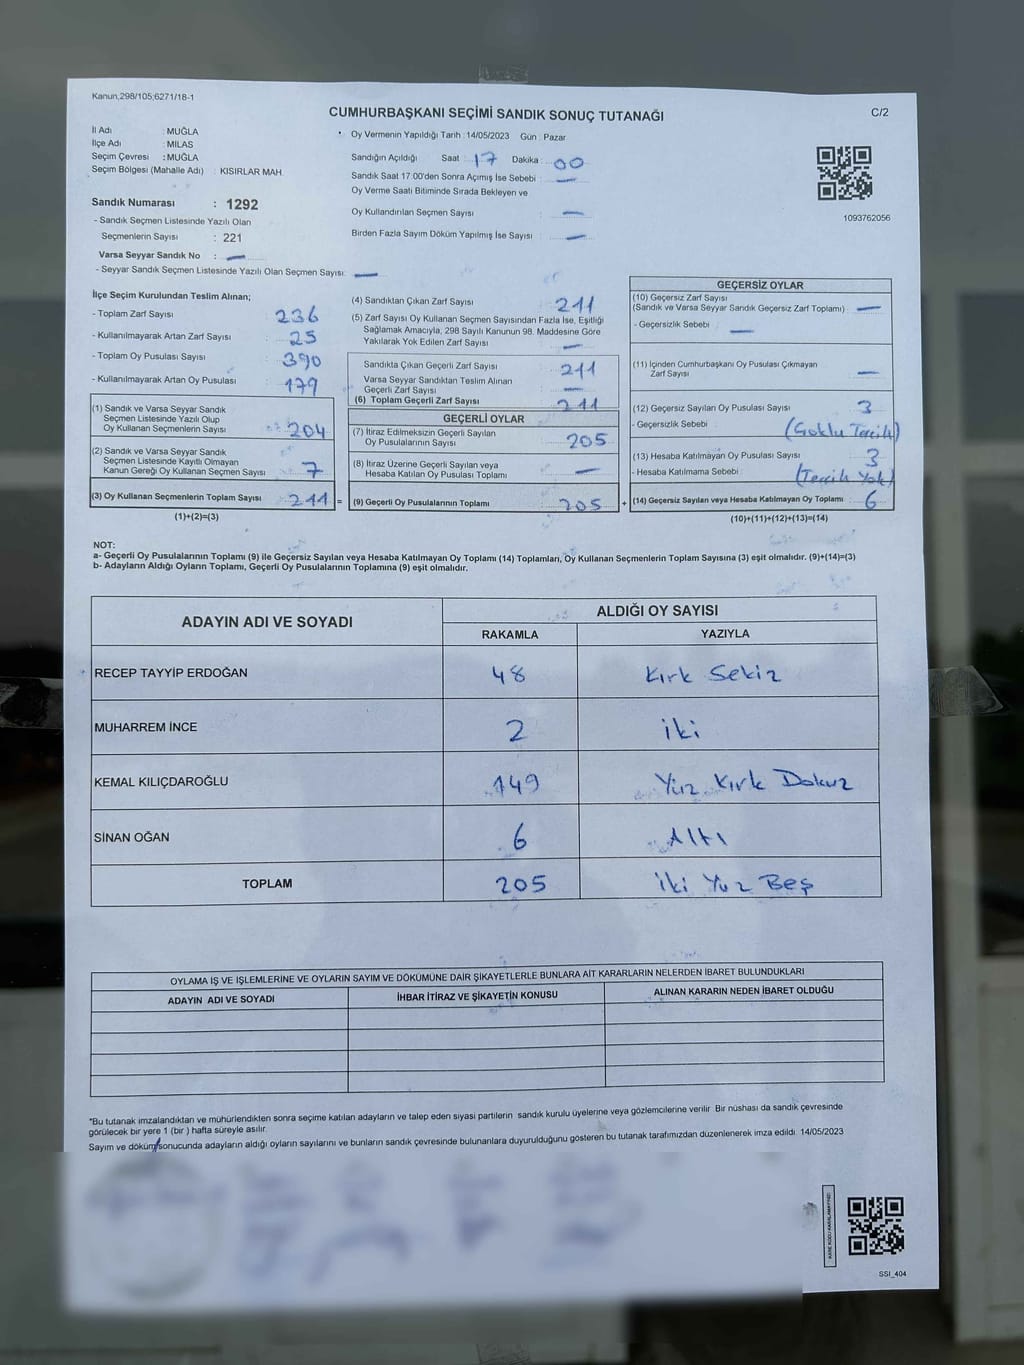 Kanun,298/105;6271/18-1
CUMHURBAŞKANI SEÇİMİ SANDIK SONUÇ TUTANAĞI
C/2
İl Adı : MUĞLA
İlçe Adı : MİLAS
Seçim Çevresi : MUĞLA
Seçim Bölgesi (Mahalle Adı) : KISIRLAR MAH.
Sandık Numarası : 1292
- Sandık Seçmen Listesinde Yazılı Olan
Seçmenlerin Sayısı : 221
Varsa Seyyar Sandık No : —
- Seyyar Sandık Seçmen Listesinde Yazılı Olan Seçmen Sayısı: —
Oy Vermenin Yapıldığı Tarih : 14/05/2023 Gün : Pazar
Sandığın Açıldığı Saat : 17 Dakika : 00
Sandık Saat 17.00'den Sonra Açımış İse Sebebi : —
Oy Verme Saati Bitiminde Sırada Bekleyen ve
Oy Kullandırılan Seçmen Sayısı : —
Birden Fazla Sayım Döküm Yapılmış İse Sayısı : —
1093762056
İlçe Seçim Kurulundan Teslim Alınan;
- Toplam Zarf Sayısı : 236
- Kullanılmayarak Artan Zarf Sayısı : 25
- Toplam Oy Pusulası Sayısı : 390
- Kullanılmayarak Artan Oy Pusulası : 179
(1) Sandık ve Varsa Seyyar Sandık
Seçmen Listesinde Yazılı Olup
Oy Kullanan Seçmenlerin Sayısı : 204
(2) Sandık ve Varsa Seyyar Sandık
Seçmen Listesinde Kayıtlı Olmayan
Kanun Gereği Oy Kullanan Seçmen Sayısı : 7
(3) Oy Kullanan Seçmenlerin Toplam Sayısı : 211 =
(1)+(2)=(3)
(4) Sandıktan Çıkan Zarf Sayısı : 211
(5) Zarf Sayısı Oy Kullanan Seçmen Sayısından Fazla İse, Eşitliği
Sağlamak Amacıyla, 298 Sayılı Kanunun 98. Maddesine Göre
Yakılarak Yok Edilen Zarf Sayısı : —
Sandıkta Çıkan Geçerli Zarf Sayısı : 211
Varsa Seyyar Sandıktan Teslim Alınan
Geçerli Zarf Sayısı : —
(6) Toplam Geçerli Zarf Sayısı : 211
GEÇERLİ OYLAR
(7) İtiraz Edilmeksizin Geçerli Sayılan
Oy Pusulalarının Sayısı : 205
(8) İtiraz Üzerine Geçerli Sayılan veya
Hesaba Katılan Oy Pusulası Toplamı : —
(9) Geçerli Oy Pusulalarının Toplamı : 205 +
GEÇERSİZ OYLAR
(10) Geçersiz Zarf Sayısı
(Sandık ve Varsa Seyyar Sandık Geçersiz Zarf Toplamı) : —
- Geçersizlik Sebebi : —
(11) İçinden Cumhurbaşkanı Oy Pusulası Çıkmayan
Zarf Sayısı : —
(12) Geçersiz Sayılan Oy Pusulası Sayısı : 3
- Geçersizlik Sebebi : (Çoklu Tercih)
(13) Hesaba Katılmayan Oy Pusulası Sayısı : 3
- Hesaba Katılmama Sebebi : (Tercih Yok)
(14) Geçersiz Sayılan veya Hesaba Katılmayan Oy Toplamı : 6
(10)+(11)+(12)+(13)=(14)
NOT:
a- Geçerli Oy Pusulalarının Toplamı (9) ile Geçersiz Sayılan veya Hesaba Katılmayan Oy Toplamı (14) Toplamları, Oy Kullanan Seçmenlerin Toplam Sayısına (3) eşit olmalıdır. (9)+(14)=(3)
b- Adayların Aldığı Oyların Toplamı, Geçerli Oy Pusulalarının Toplamına (9) eşit olmalıdır.
ADAYIN ADI VE SOYADI ALDIĞI OY SAYISI
RAKAMLA YAZIYLA
RECEP TAYYİP ERDOĞAN 48 Kırk Sekiz
MUHARREM İNCE 2 iki
KEMAL KILIÇDAROĞLU 149 Yüz Kırk Dokuz
SİNAN OĞAN 6 Altı
TOPLAM 205 iki Yuz Beş
OYLAMA İŞ VE İŞLEMLERİNE VE OYLARIN SAYIM VE DÖKÜMÜNE DAİR ŞİKAYETLERLE BUNLARA AİT KARARLARIN NELERDEN İBARET BULUNDUKLARI
ADAYIN ADI VE SOYADI İHBAR İTİRAZ VE ŞİKAYETİN KONUSU ALINAN KARARIN NEDEN İBARET OLDUĞU
*Bu tutanak imzalandıktan ve mühürlendikten sonra seçime katılan adayların ve talep eden siyasi partilerin sandık kurulu üyelerine veya gözlemcilerine verilir. Bir nüshası da sandık çevresinde
görülecek bir yere 1 (bir) hafta süreyle asılır.
Sayım ve döküm sonucunda adayların aldığı oyların sayılarını ve bunların sandık çevresinde bulunanlara duyurulduğunu gösteren bu tutanak tarafımızdan düzenlenerek imza edildi. 14/05/2023
KARE KODU KARALAMAYINIZ!
SSI_404